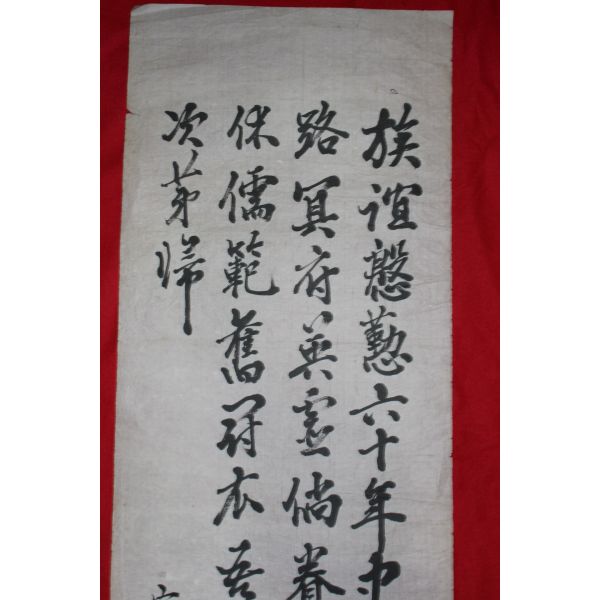 族誼慇懃六十年中
路冥府英靈倘眷
休儒範舊冠衣吾
次第歸